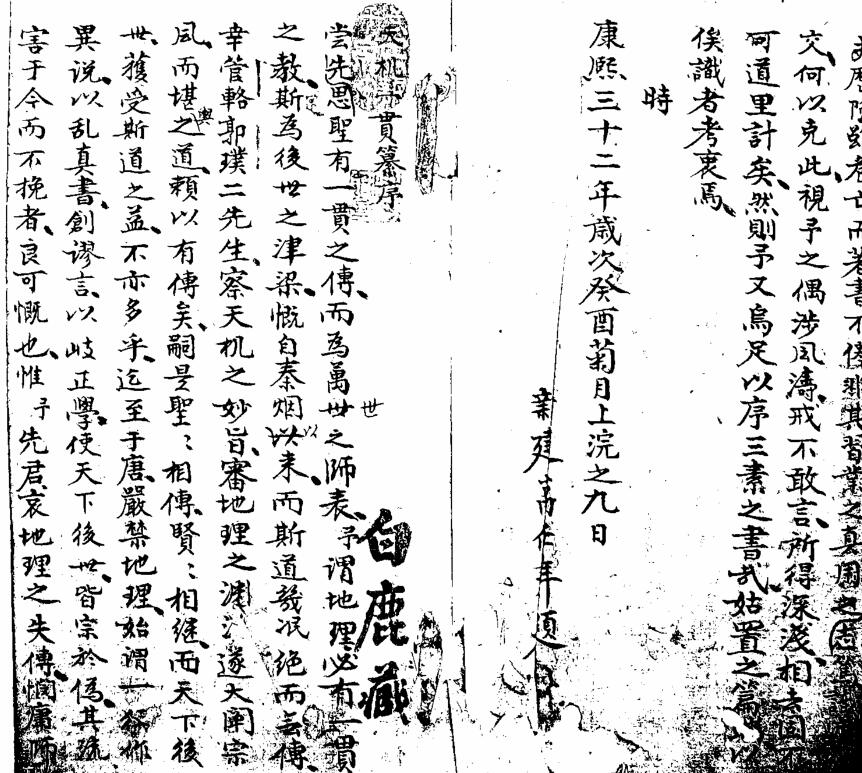 而著書不倦非其習業之真
交何以克此視予之偶涉风濤戒不敢言所得深淺相去固不
可道里計矣然則予又烏足以序三素之書哉姑置之篇端以
俟識者考衷焉
時
康熙三十二年歲次癸酉菊月上浣之九日
新建
天机一貫纂序
尝先思聖有一貫之傳而為萬世之師表予謂地理必有一貫
世
白鹿藏
之教斯為後世之津梁慨自秦烟以来而斯道幾泯絕而無傳
幸管輅郭璞二先生察天机之妙旨審地理之渊遂大闡宗
风而堪輿之道頼以有傳矣嗣是聖〻相傳賢〻相継而天下後
世獲受斯道之益不亦多乎迄至于唐嚴禁地理始謂一行作
異説以乱真書創謬言以岐正學使天下後世皆宗於偽其流
害于今而不挽者良可慨也惟予先君哀地理之失傳悯庸師